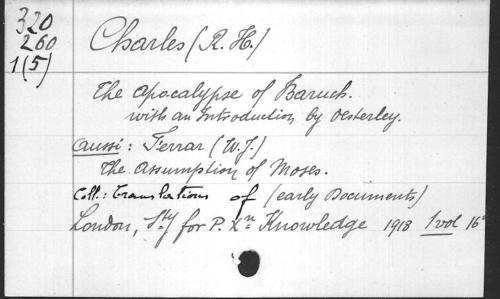 320
260
1(5)
Charles (R. H.)
The Apocalypse of Baruch.
with an Introduction by Oesterley.
aussi : Ferrar (W. J.)
The Assumption of Moses.
Coll.: Translations of (early Documents)
London, Sty for P. Xn Knowledge 1918 1 vol 16°